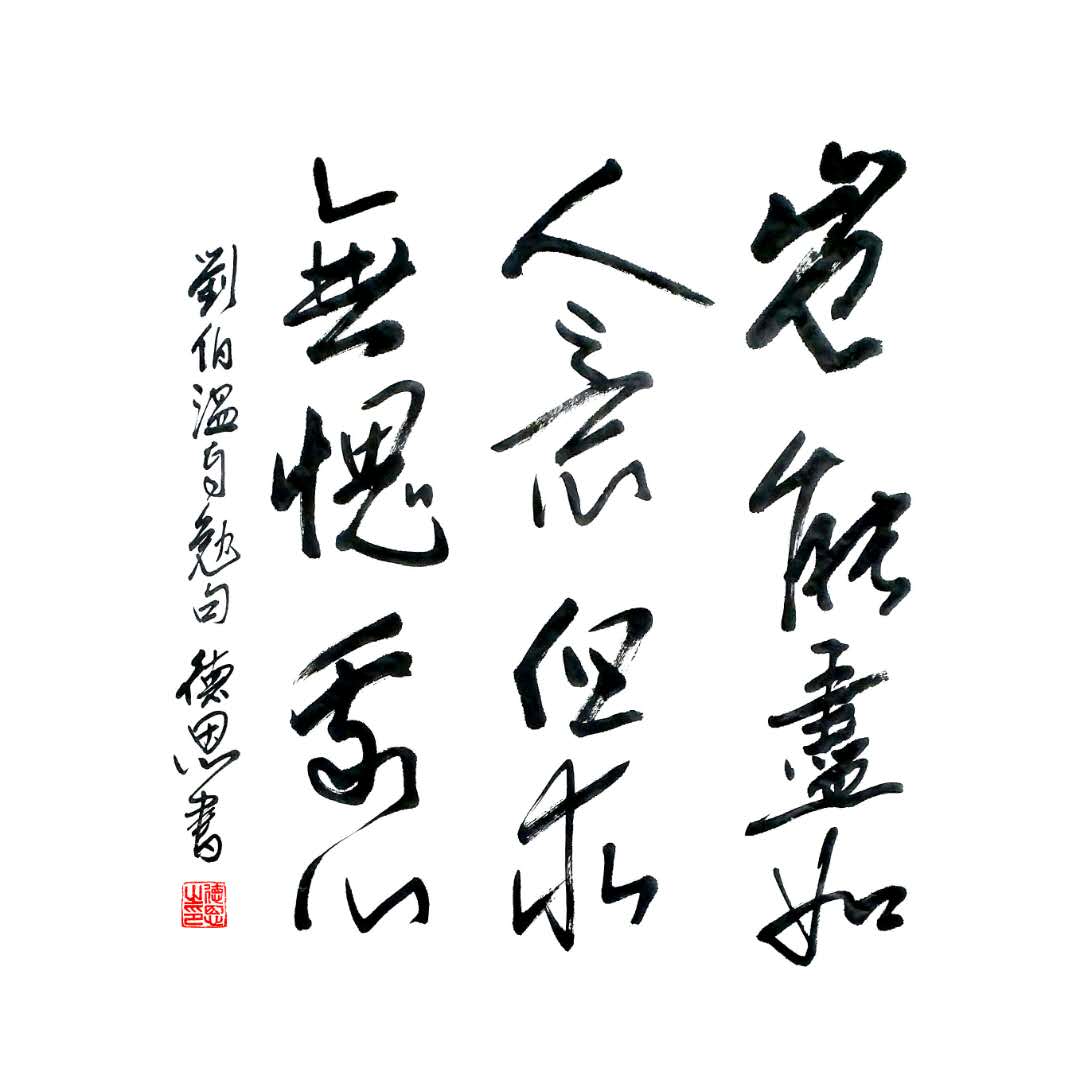 豈能盡如
人意但求
無愧我心
劉伯温自勉句 德恩書
德恩之印